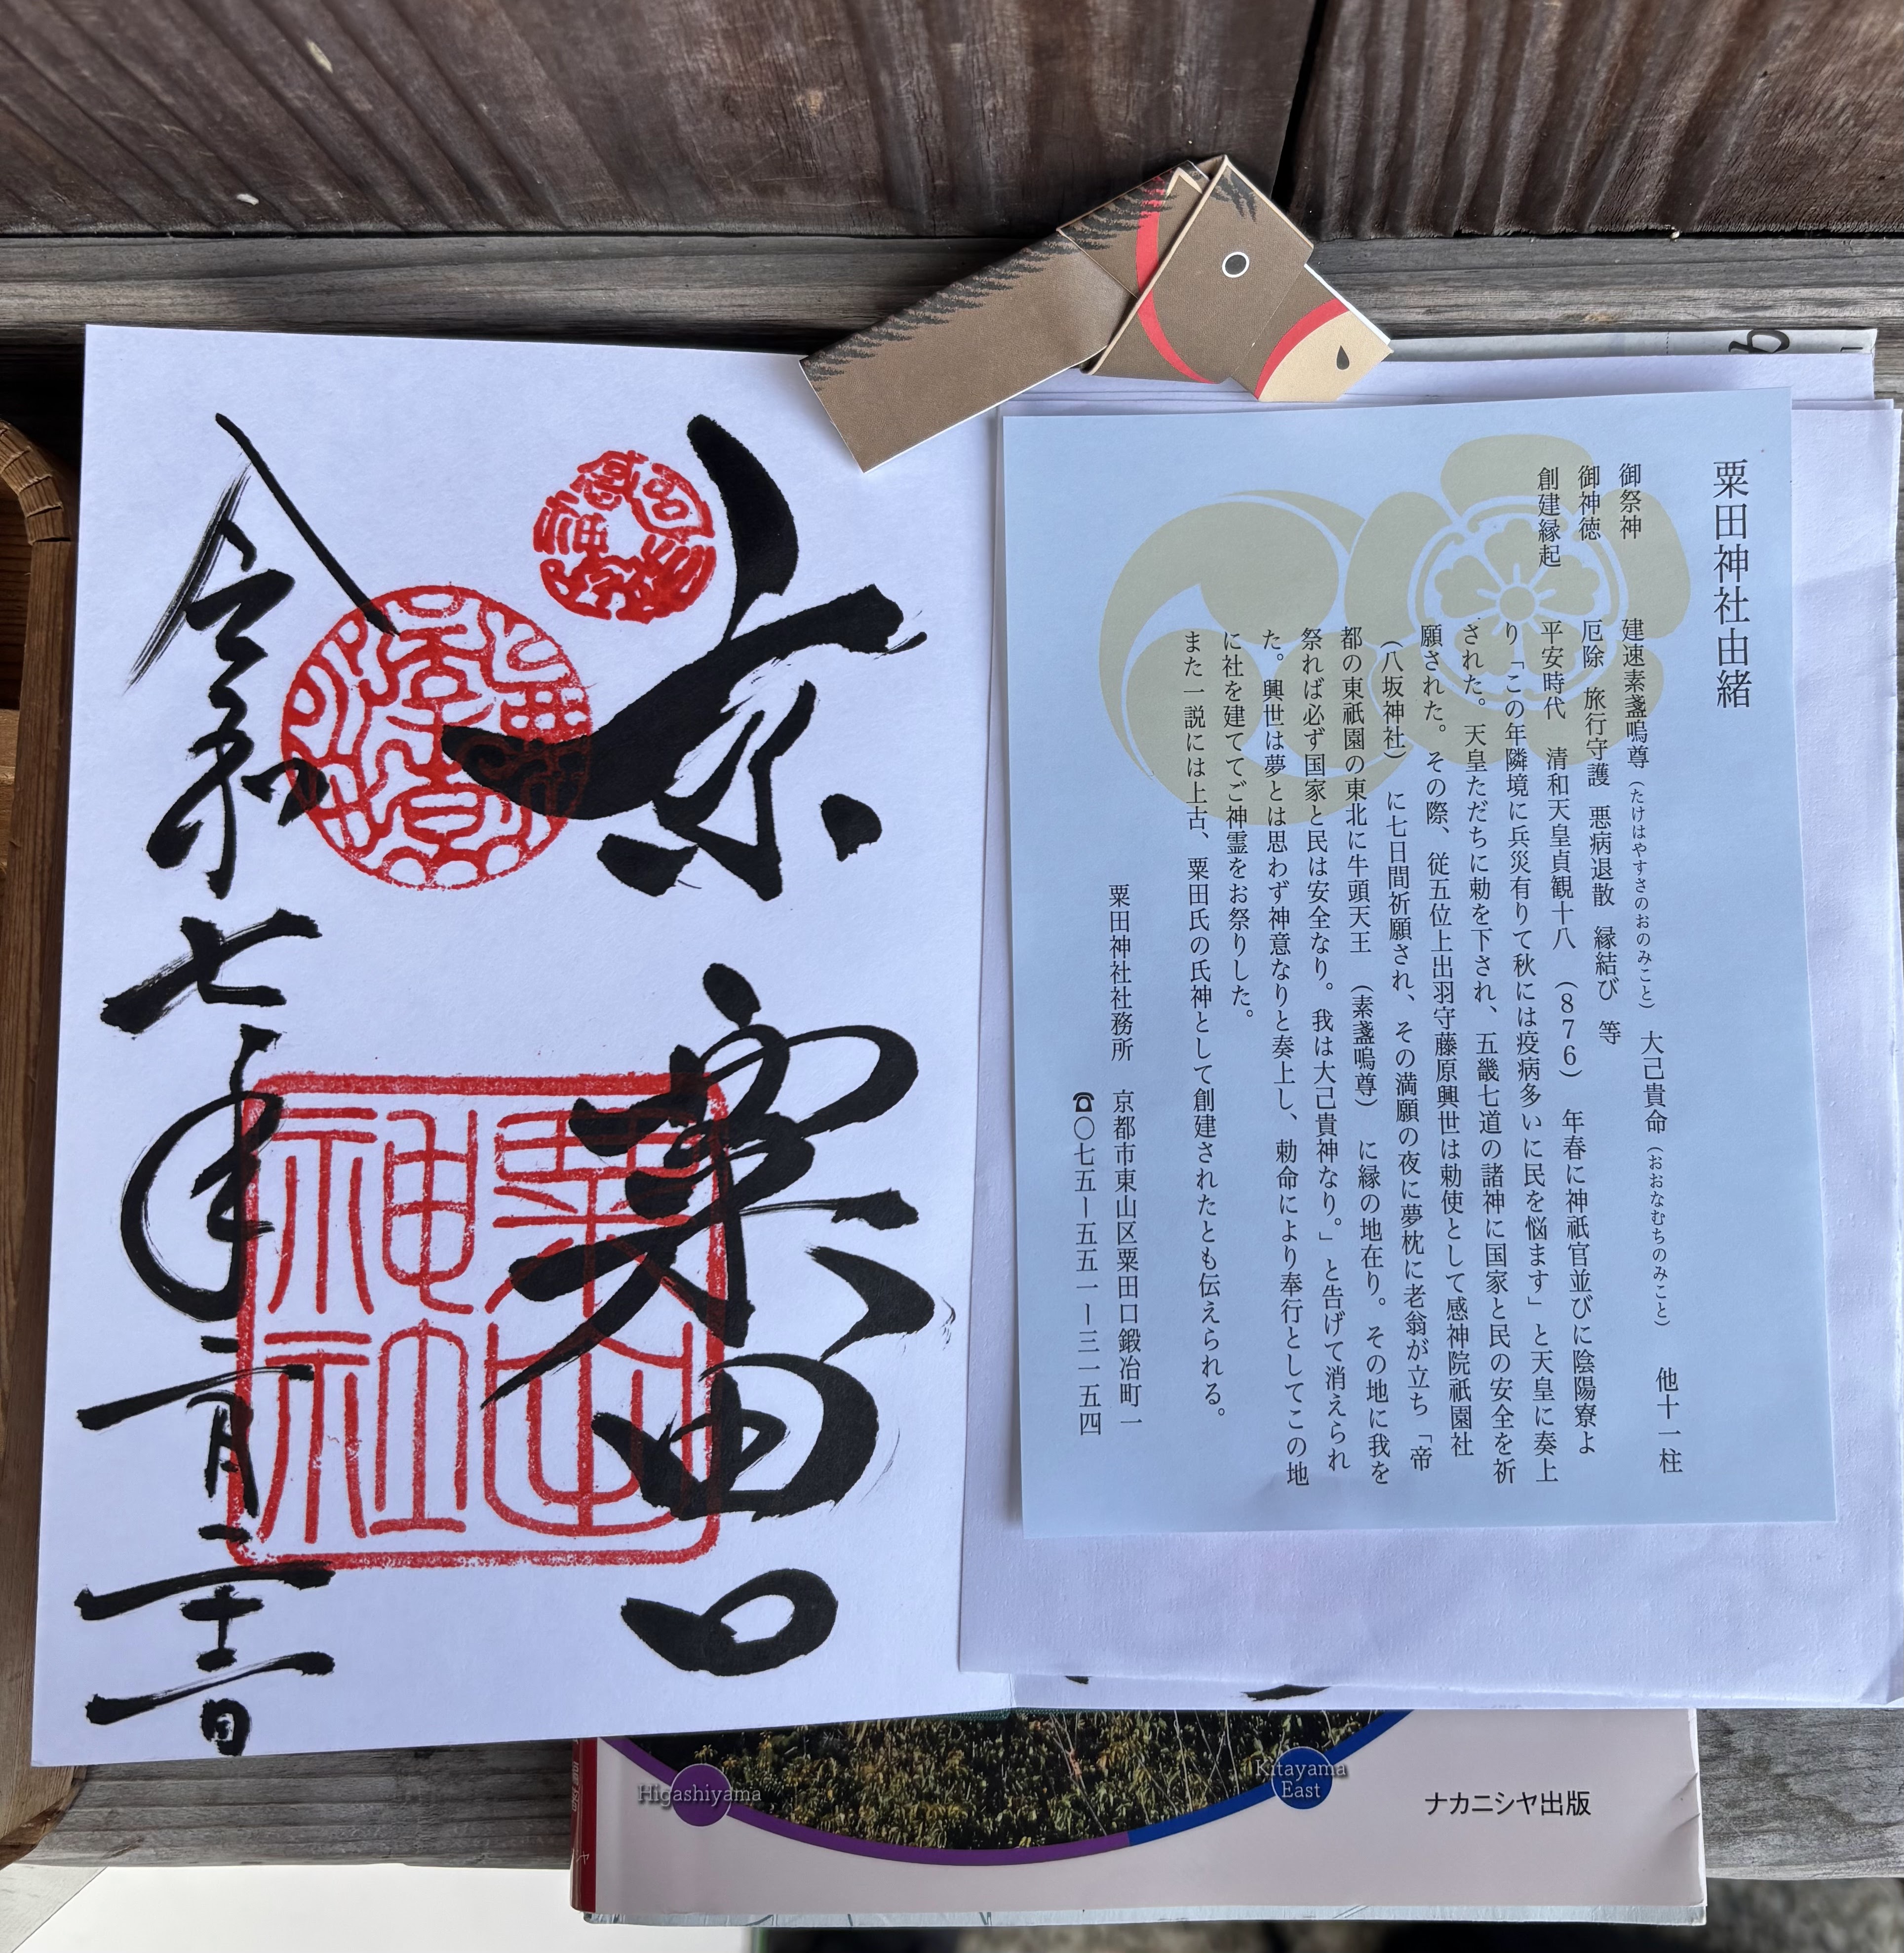 粟田神社由緒
御祭神　建速素盞嗚尊（たけはやすさのおのみこと）　大己貴命（おおなむちのみこと）　他十一柱
御神徳　厄除　旅行守護　悪病退散　縁結び　等
創建縁起　平安時代　清和天皇貞観十八　（８７６）　年春に神祇官並びに陰陽寮よ
り「この年隣境に兵災有りて秋には疫病多いに民を悩ます」と天皇に奏上
された。天皇ただちに勅を下され、五畿七道の諸神に国家と民の安全を祈
願された。その際、従五位上出羽守藤原興世は勅使として感神院祇園社
（八坂神社）　に七日間祈願され、その満願の夜に夢枕に老翁が立ち「帝
都の東祇園の東北に牛頭天王　（素盞嗚尊）　に縁の地在り。その地に我を
祭れば必ず国家と民は安全なり。我は大己貴神なり。」と告げて消えられ
た。興世は夢とは思わず神意なりと奏上し、勅命により奉行としてこの地
に社を建ててご神霊をお祭りした。
また一説には上古、粟田氏の氏神として創建されたとも伝えられる。
粟田神社社務所　京都市東山区粟田口鍛冶町一
☎〇七五ー五五一ー三一五四
京　粟田口
感神院新宮
粟田
神社
令和七年二月二十二日
Higashiyama
Kitayama
East
ナカニシヤ出版